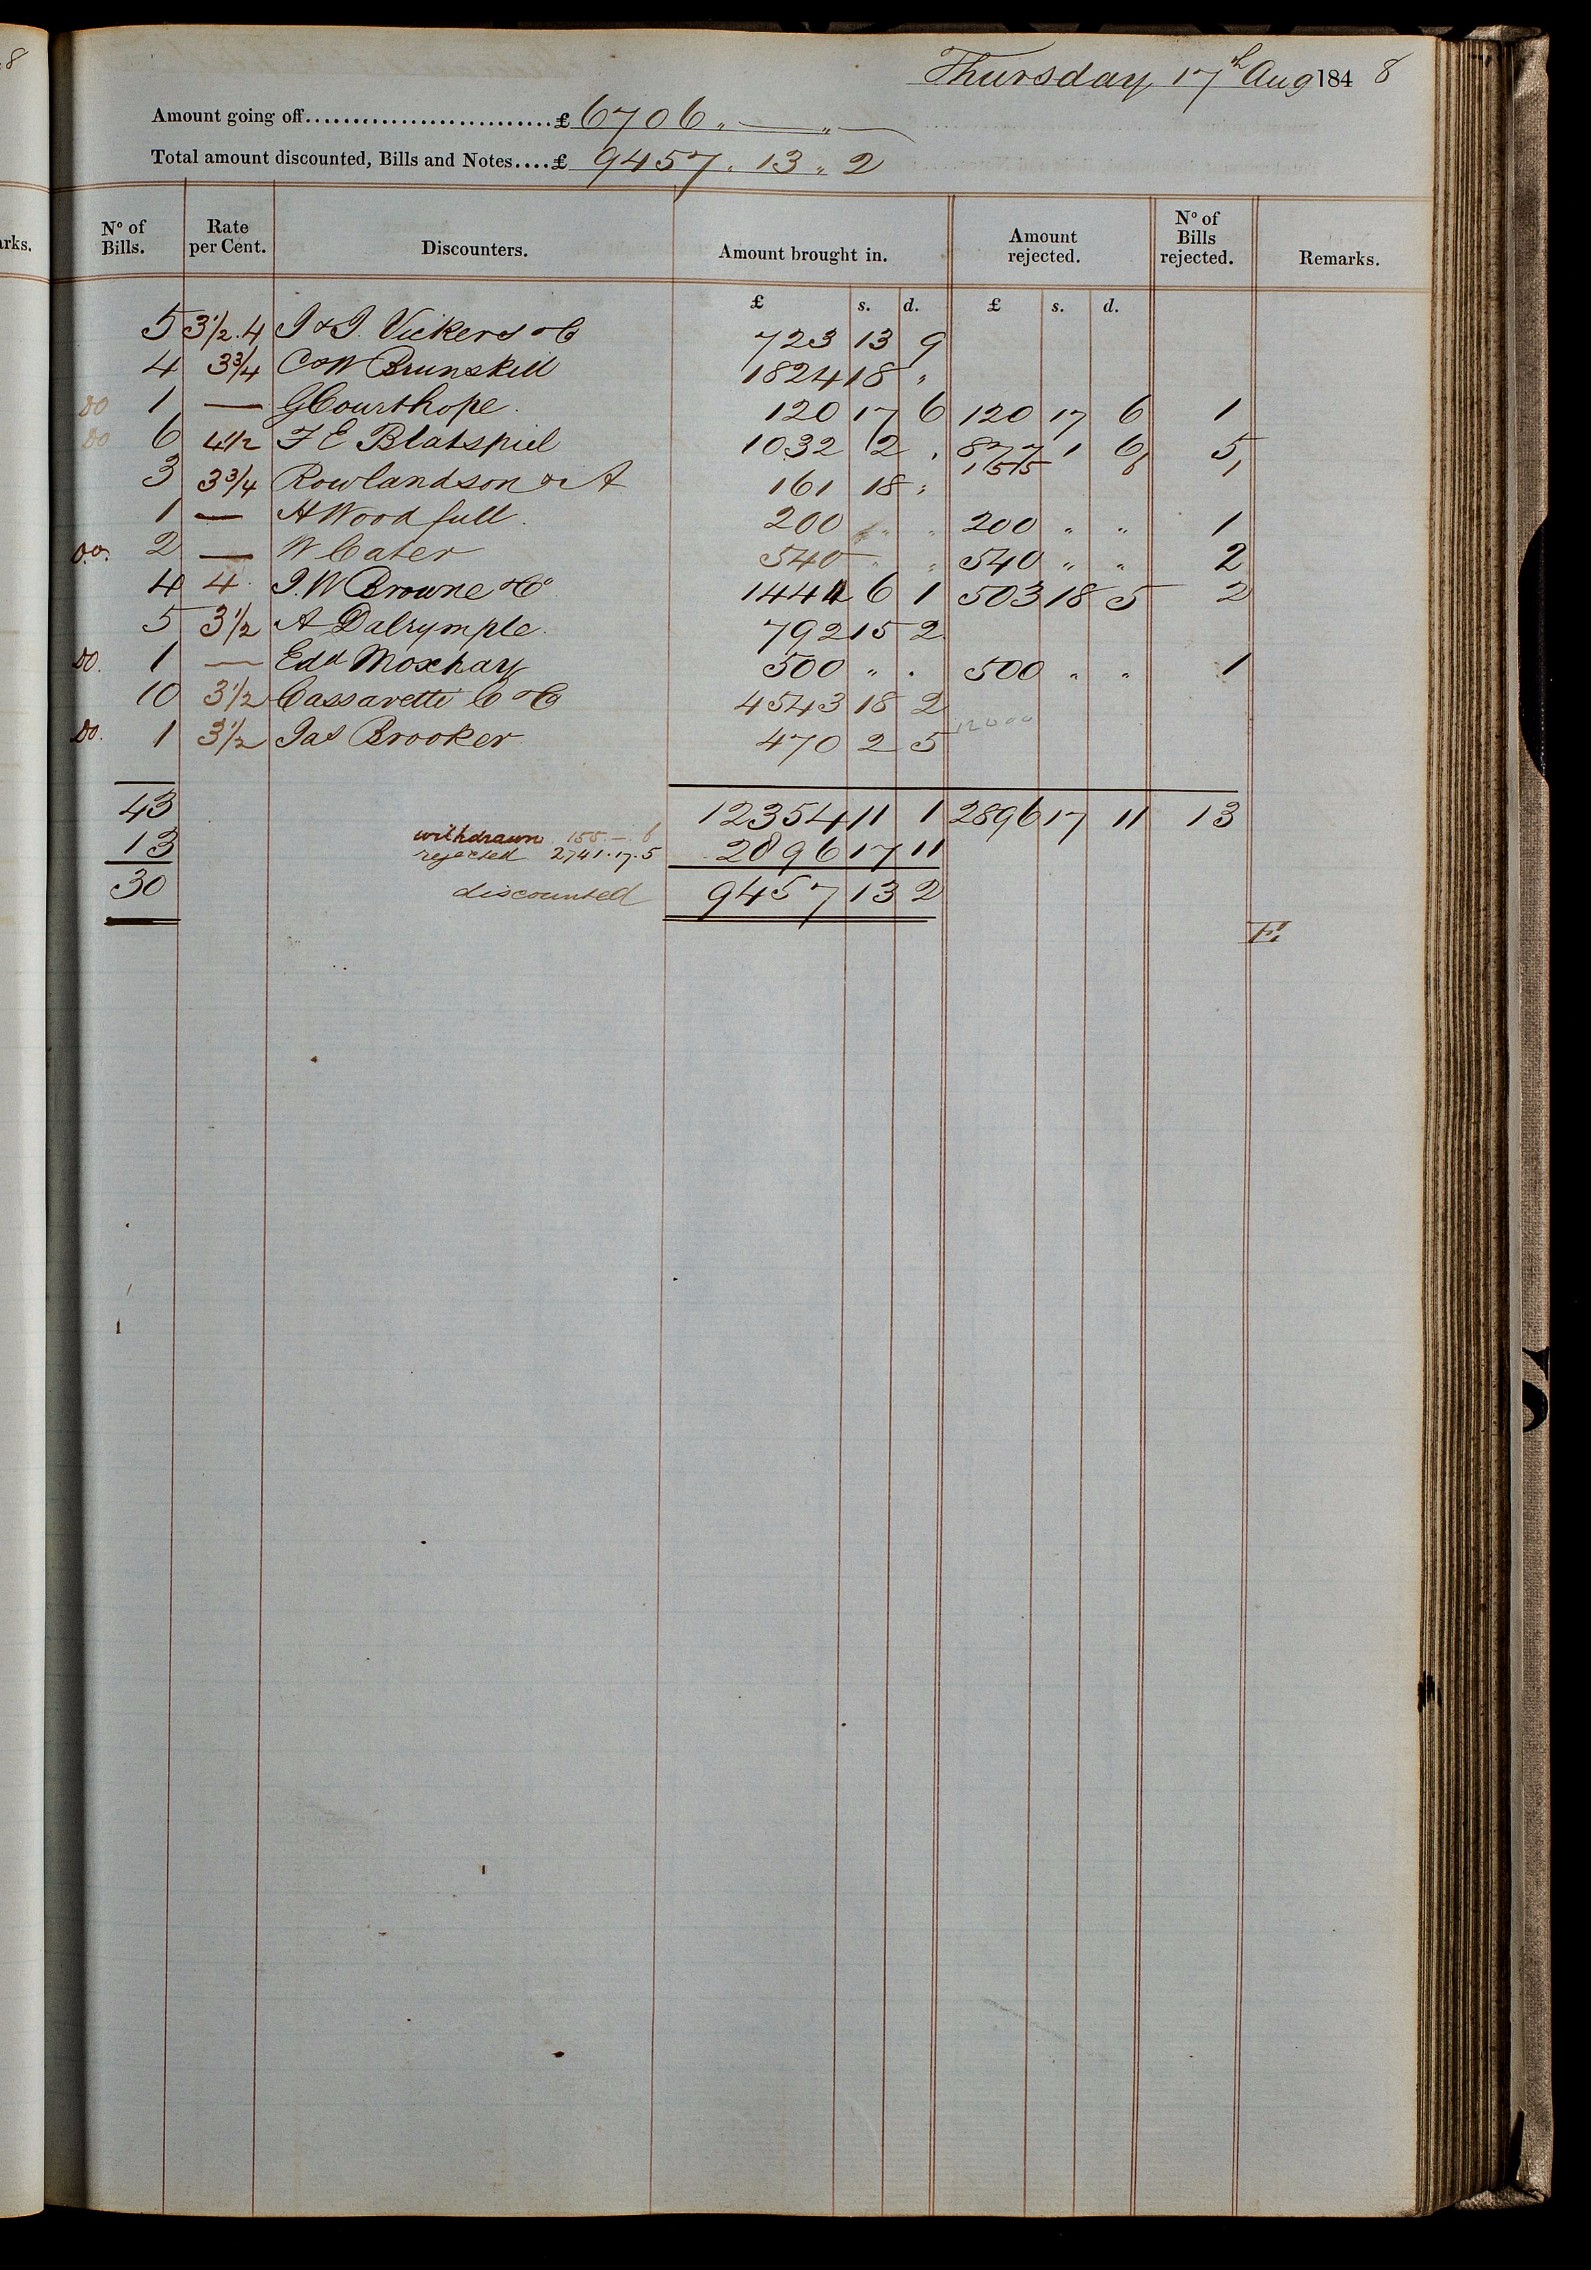 8
Thursday 17th Aug 1848
Amount going off........................... £ 6706 " — " —
Total amount discounted, Bills and Notes.... £ 9457 " 13 " 2
arks.
No of Bills. Rate per Cent. Discounters. Amount brought in. Amount rejected. No of Bills rejected. Remarks.
£ s. d. £ s. d.
5 3½.4 J & J. Vickers & Co 723 13 9
4 3¾ C & W Brunskill 1824 18 "
Do 1 — G Courthope. 120 17 6 120 17 6 1
Do 6 4½ F E Blatspiel 1032 2 " 877 1 6 5
155 6 1
3 3¾ Rowlandson & A 161 18 "
1 — H Woodfull. 200 " " 200 " " 1
Do. 2 — W Cater 540 " " 540 " " 2
4 4 J. W Browne & Co 1444 6 1 503 18 5 2
5 3½ A Dalrymple. 792 15 2
Do. 1 — Edd Moxhay 500 " " 500 " " 1
10 3½ Cassavetti C & Co 4543 18 2
12000
Do. 1 3½ Jas Brooker 470 2 5
43 12354 11 1 2896 17 11 13
withdrawn 155. — 6
13 rejected 2741.17.5 2896 17 11
30 discounted 9457 13 2
E.